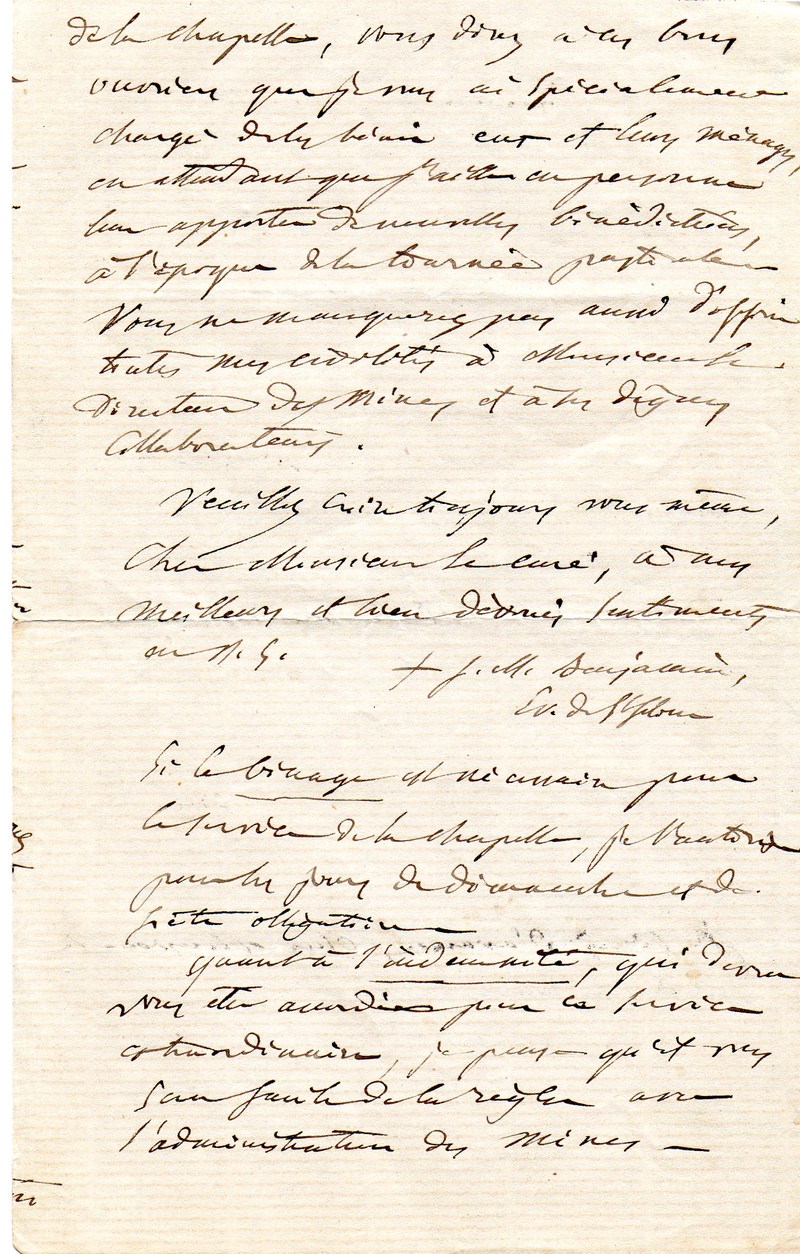 de la chapelle, vous direz à ces bons
ouvriers que je vous ai spécialement
chargé de les bénir eux et leurs ménages,
en attendant que j'aille en personne
leur apporter de nouvelles bénédictions,
à l'époque de la tournée pastorale.
Vous ne manquerez pas aussi d'offrir
toutes mes civilités à Monsieur le
Directeur des Mines et à ses dignes
Collaborateurs.
Veuillez croire toujours vous même,
Cher Monsieur le curé, à mes
meilleurs et bien dévoués sentiments
en N. S.
+ J. M. Benjamin,
Ev. de St flour
Si le binage est nécessaire pour
le service de la chapelle, je l'autorise
pour les jours de dimanche et de
fête d'obligation
quant à l'indemnité, qui devra
vous être accordée pour ce service
extraordinaire, je pense qu'il vous
sera facile de la régler avec
l'administration des mines —